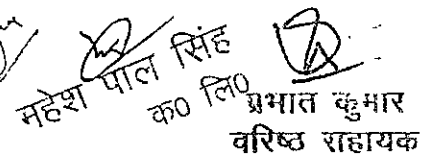 महेश पाल सिंह
क० लि०
प्रभात कुमार
वरिष्ठ राहायक